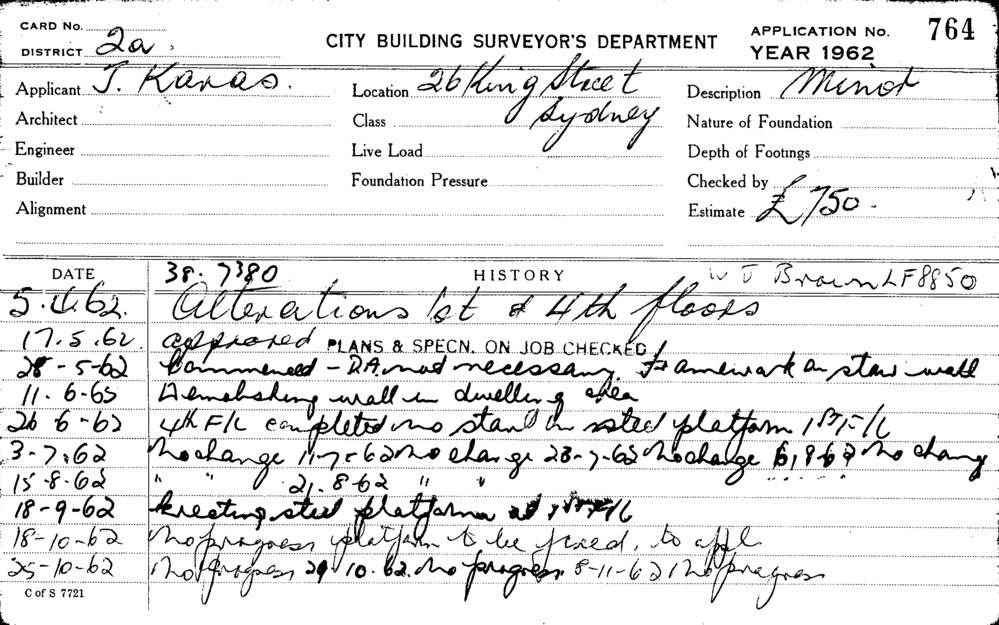 CARD No. CITY BUILDING SURVEYOR'S DEPARTMENT APPLICATION No. 764
DISTRICT 2a. YEAR 1962
Applicant J. Karas. Location 26 King Street Sydney Description Minor
Architect Class Nature of Foundation
Engineer Live Load Depth of Footings
Builder Foundation Pressure Checked by
Alignment Estimate £750.
DATE 38.7380 HISTORY W J Brown LF8850
5.4.62. Alterations 1st & 4th floors
17.5.62. approved PLANS & SPECN. ON JOB CHECKED
28-5-62 Commenced - DA not necessary. Framework on stair wall
11.6-65 Demolishing wall in dwelling area
26 6-62 4th F/L completed no start on steel platform 1st F/L
3-7.62 No change 11-7-62 No change 23-7-62 No change 6,8 62 No change
15-8-62 " " 21.8 62 " "
18-9-62 Erecting steel platform at 1st F/L
18-10-62 No progress platform to be fixed, to
25-10-62 No progress 29 10.62. No progress 8-11-62 No progress
C of S 7721